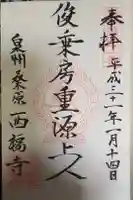 奉拝
平成三十一年一月十四日
俊乗房重源上人
泉州桑原
西福寺